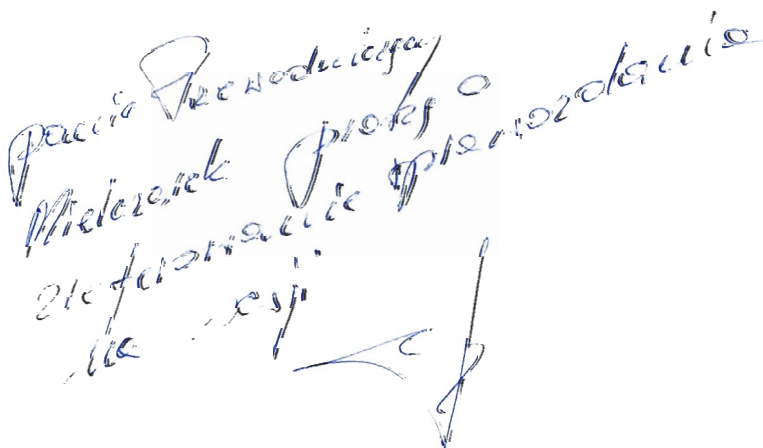 Pani Przewodnicząca
proszę o
zreferowanie sprawozdania
na sesji